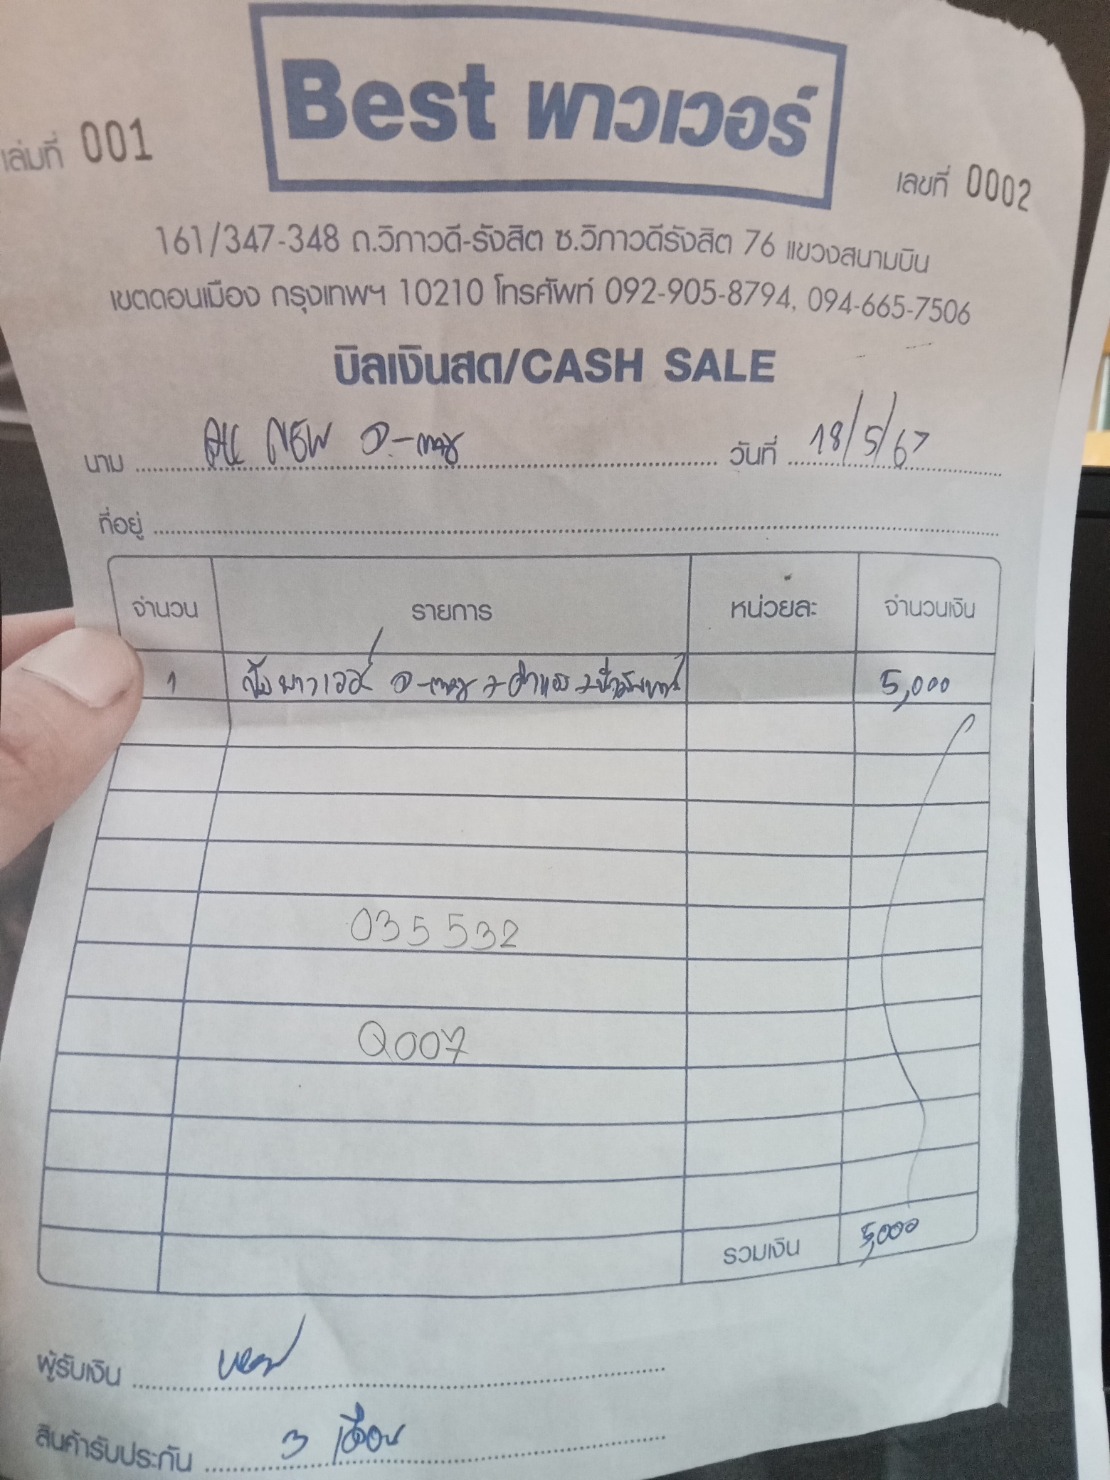 Best พาวเวอร์
เล่มที่ 001
เลขที่ 0002
161/347-348 ถ.วิภาวดี-รังสิต ซ.วิภาวดีรังสิต 76 แขวงสนามบิน
เขตดอนเมือง กรุงเทพฯ 10210 โทรศัพท์ 092-905-8794, 094-665-7506
บิลเงินสด/CASH SALE
นาม ALL NEW D-max วันที่ 18/5/67
ที่อยู่
จำนวน รายการ หน่วยละ จำนวนเงิน
1 ปั๊มพาวเวอร์ D-max + ค่าแรง + 5,000
035532
Q007
รวมเงิน 5,000
ผู้รับเงิน
สินค้ารับประกัน 3 เดือน